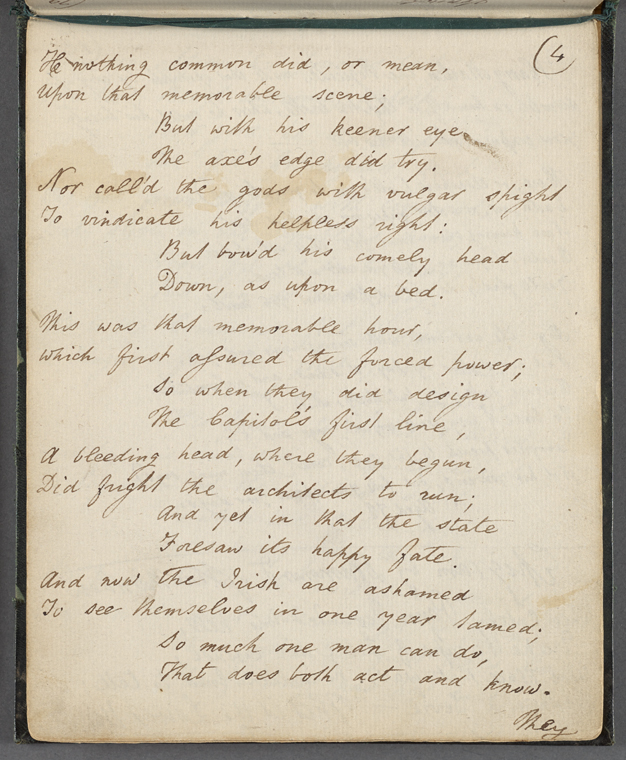 (4
He nothing common did, or mean,
Upon that memorable scene;
But with his keener eye
The axe's edge did try.
Nor call'd the gods with vulgar spight
To vindicate his helpless right:
But bow'd his comely head
Down, as upon a bed.
This was that memorable hour,
which first aſsured the forced power;
So when they did design
The Capitol's first line,
A bleeding head, where they begun,
Did fright the architects to run;
And yet in that the state
Foresaw its happy fate.
And now the Irish are ashamed
To see themselves in one year tamed;
So much one man can do,
That does both act and know.
They